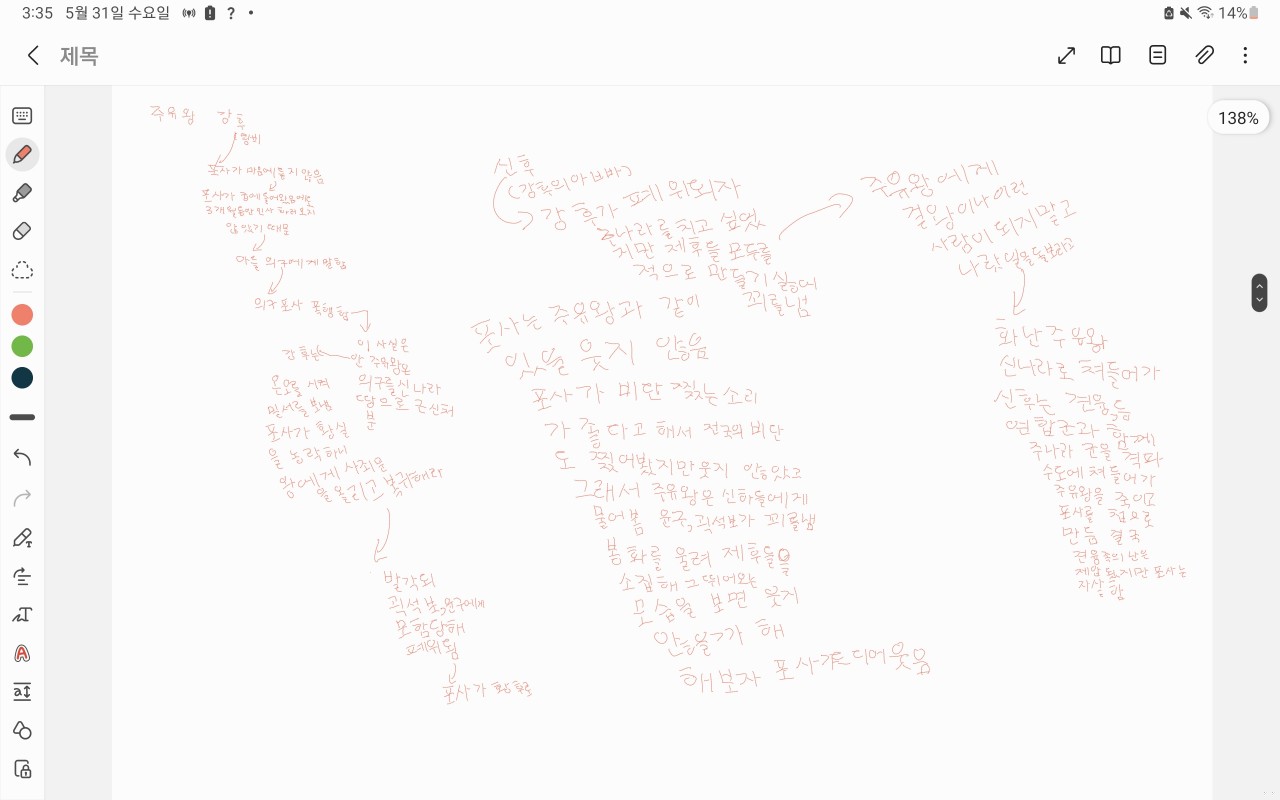 3:35 5월 31일 수요일
14%
제목
138%
주유왕 강후
왕비
포사가 마음에 들지 않음
포사가 궁에 들어왔음에도
3개월동안 인사 하러 오지
않았기 때문
아들 의구에게 말함
의구 포사 폭행함
이 사실은
안 주유왕은
의구를 신나라
땅으로 근신처
분
강후는
온오를 시켜
밀서를 보냄
포사가 황실
을 농락하니
왕에게 사죄을
을 올리고 복귀해라
발각되
괵석보, 윤구에게
모함당해
폐위됨
포사가 황후로
신후
(강후의 아빠)
강후가 폐위되자
주나라를 치고 싶었
지만 제후들 모두를
적으로 만들기 싫어
꾀를냄
포사는 주유왕과 같이
있을 웃지 않음
포사가 비단 찢는 소리
가 좋다고 해서 전국의 비단
도 찢어봤지만 웃지 않았고
그래서 주유왕은 신하들에게
물어봄 윤구, 괵석보가 꾀를냄
봉화를 울려 제후들을
소집해 그 뛰어오는
모습을 보면 웃지
않을가 해
해보자 포사가 드디어 웃음
주유왕에게
걸왕이나 이런
사람이 되지말고
나랏일을 돌보라고
화난 주유왕
신나라로 쳐들어가
신후는 견융등
연합군과 함께
주나라 군을 격파
수도에 쳐들어가
주유왕을 죽이고
포사를 첩으로
만듬 결국
견융족의 난은
제압됬지만 포사는
자살함